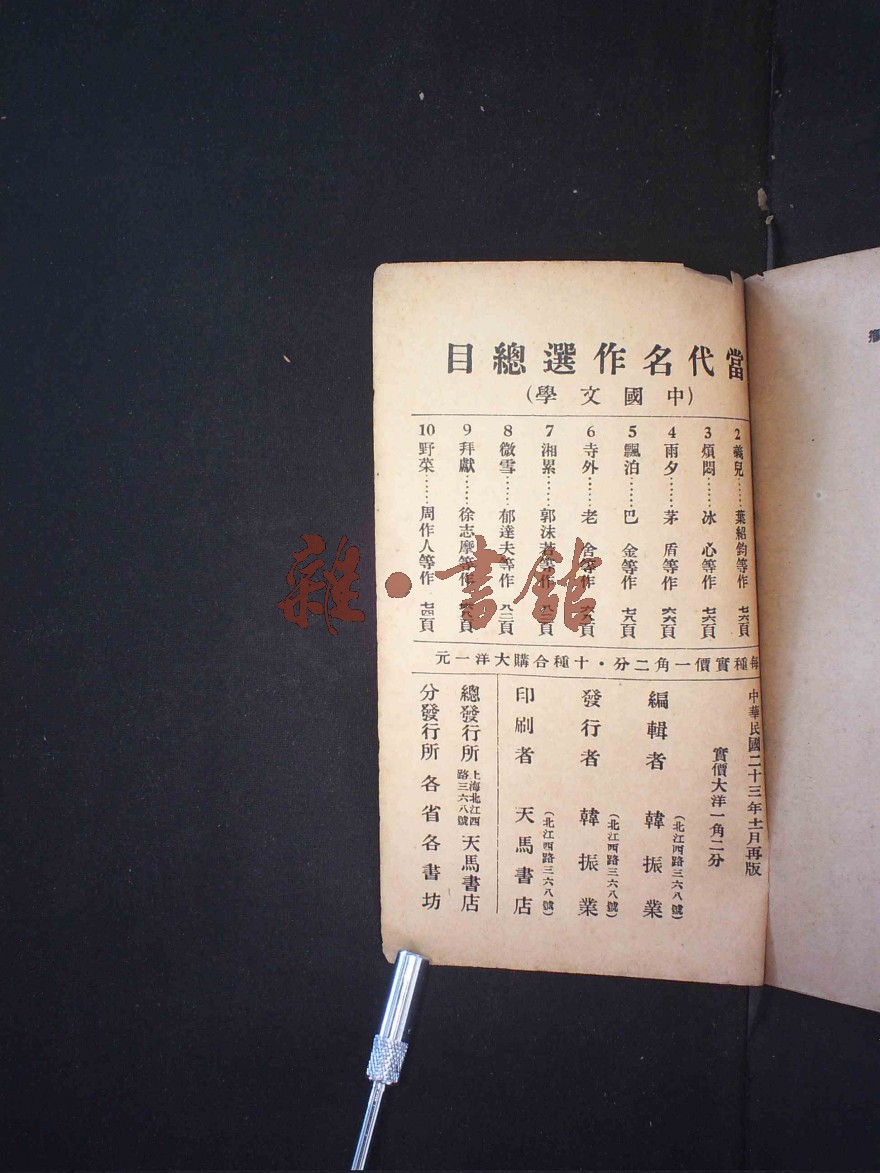 當代名作選總目
(中國文學)
2 義兒……葉紹鈞等作
3 煩悶……冰心等作 七六頁
4 雨夕……茅盾等作 六六頁
5 飄泊……巴金等作 七八頁
6 寺外……老舍等作
7 湘累……郭沫若等作
8 微雪……郁達夫等作 八二頁
9 拜獻……徐志摩等作
10 野菜……周作人等作 七四頁
每種實價一角二分・十種合購大洋一元
中華民國二十三年十一月再版
實價大洋一角二分
編輯者 韓振業
(北江西路三六八號)
發行者 韓振業
(北江西路三六八號)
印刷者 天馬書店
(北江西路三六八號)
總發行所 上海北江西路三六八號 天馬書店
分發行所 各省各書坊
雜・書館